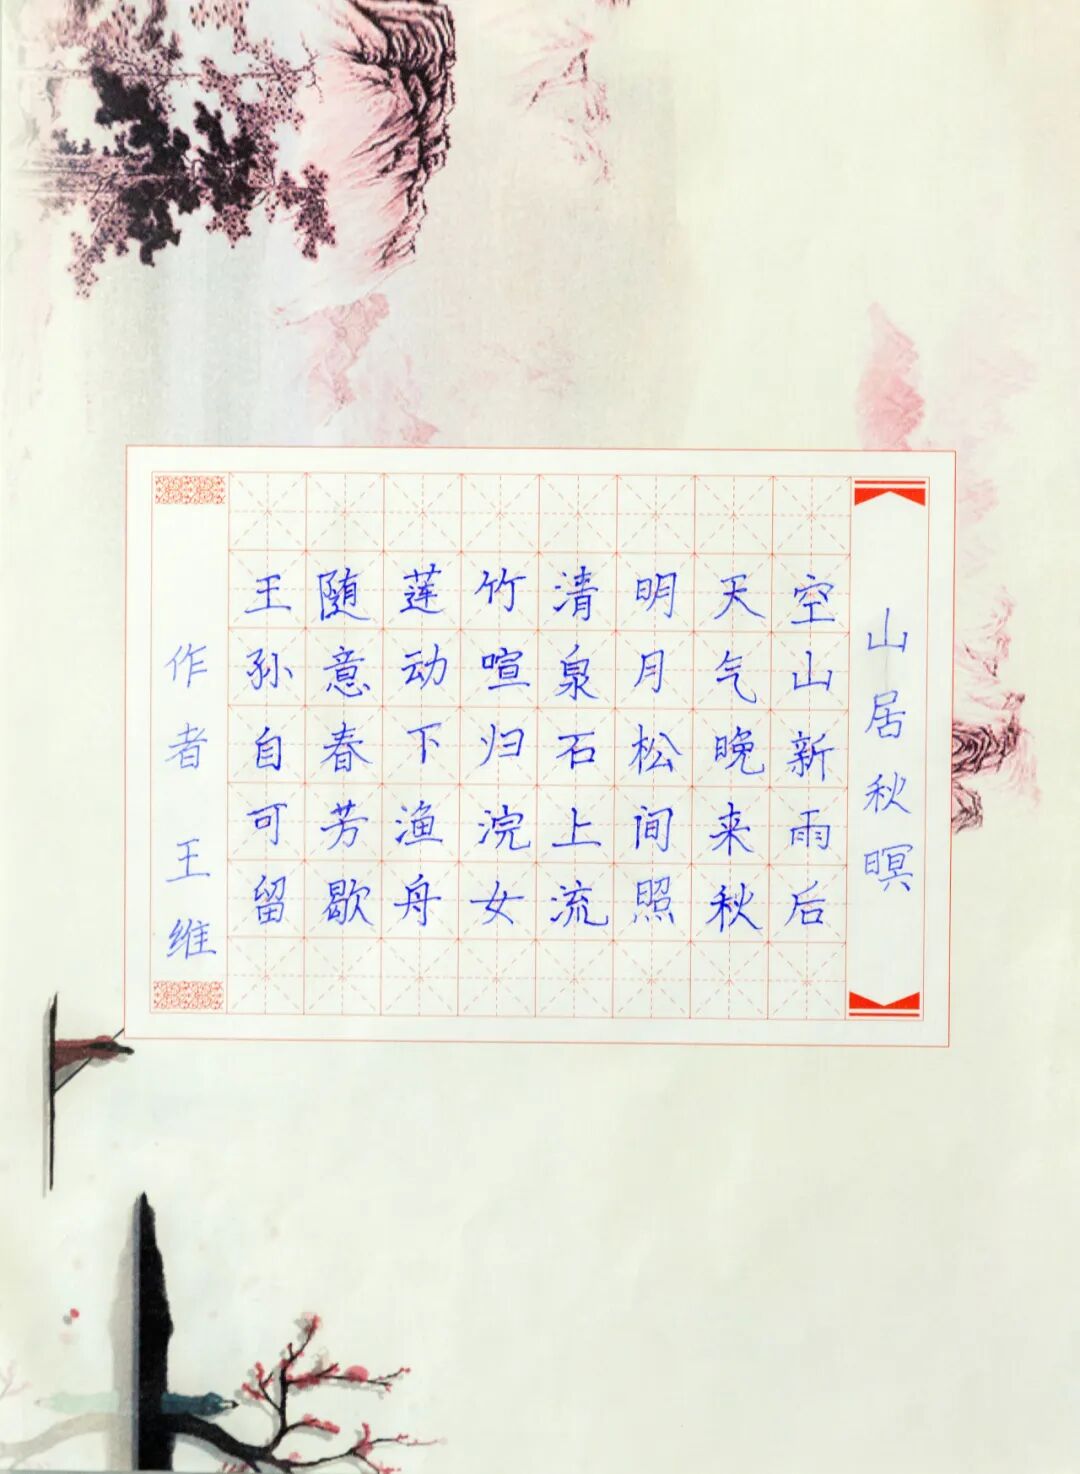 山居秋暝
空山新雨后
天气晚来秋
明月松间照
清泉石上流
竹喧归浣女
莲动下渔舟
随意春芳歇
王孙自可留
作者 王维